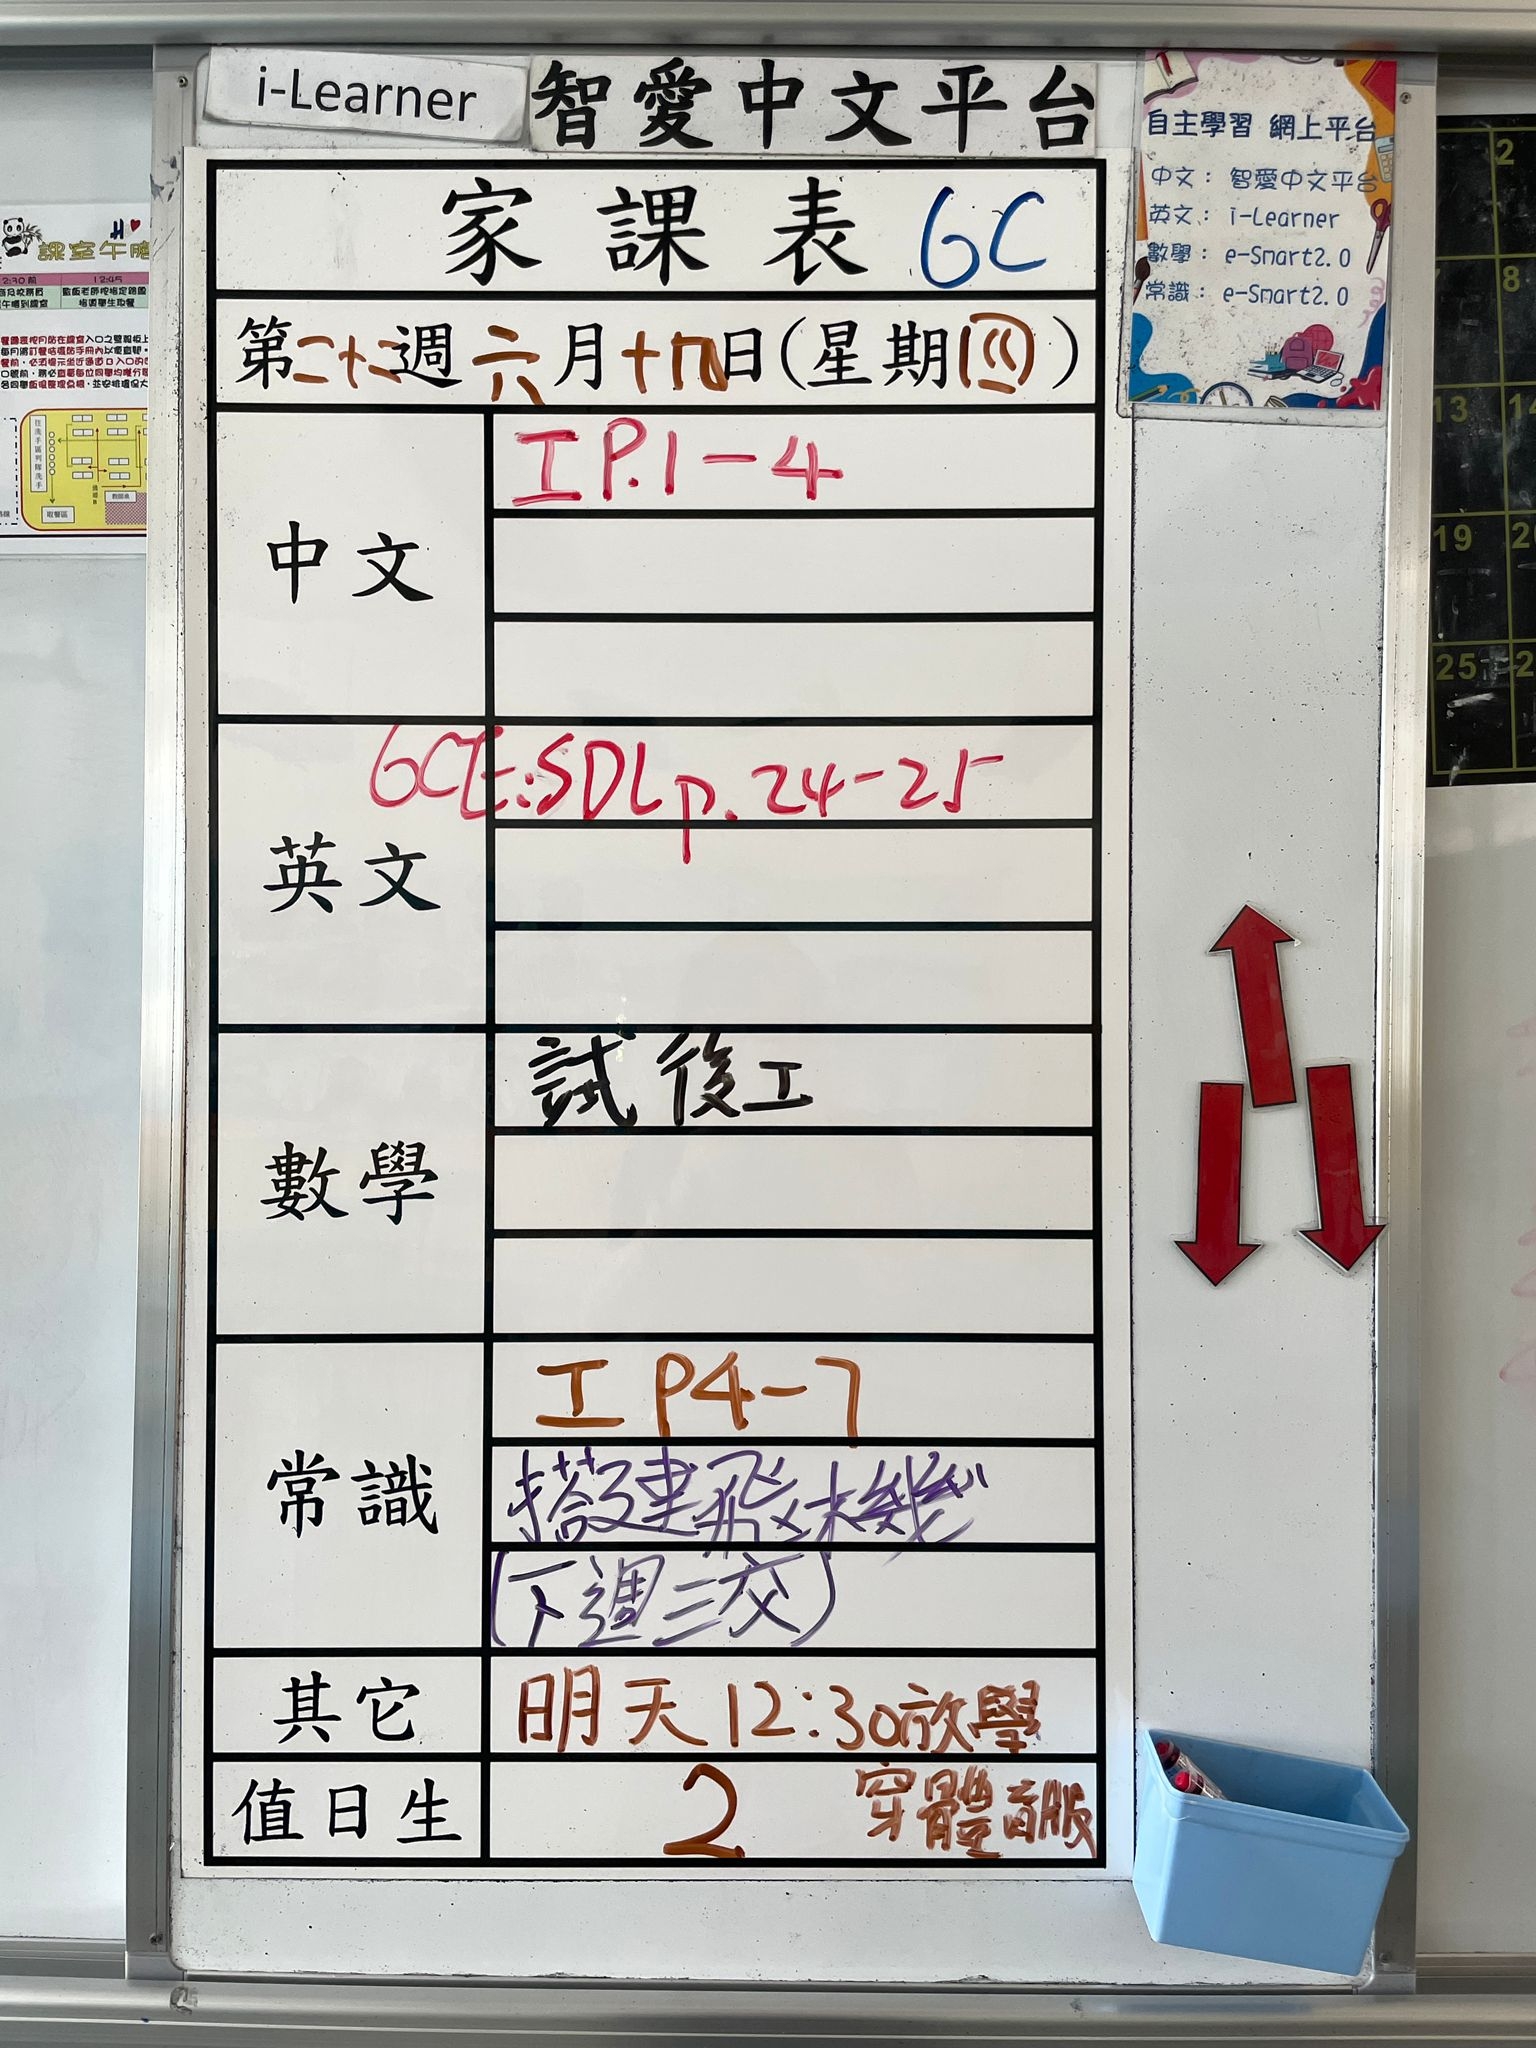 i-Learner 智愛中文平台
家課表 6C
第二十二週 六月十九日(星期四)
中文
工 P.1-4
英文
6CE:SDL p.24-25
數學
試後工
常識
工 P4-7
搭建飛機
(下週三交)
其它
明天12:30放學
值日生
2 穿體育服
自主學習 網上平台
中文：智愛中文平台
英文：i-Learner
數學：e-Smart2.0
常識：e-Smart2.0
課室午膳
12:45
取餐區
2
8
13
19
25